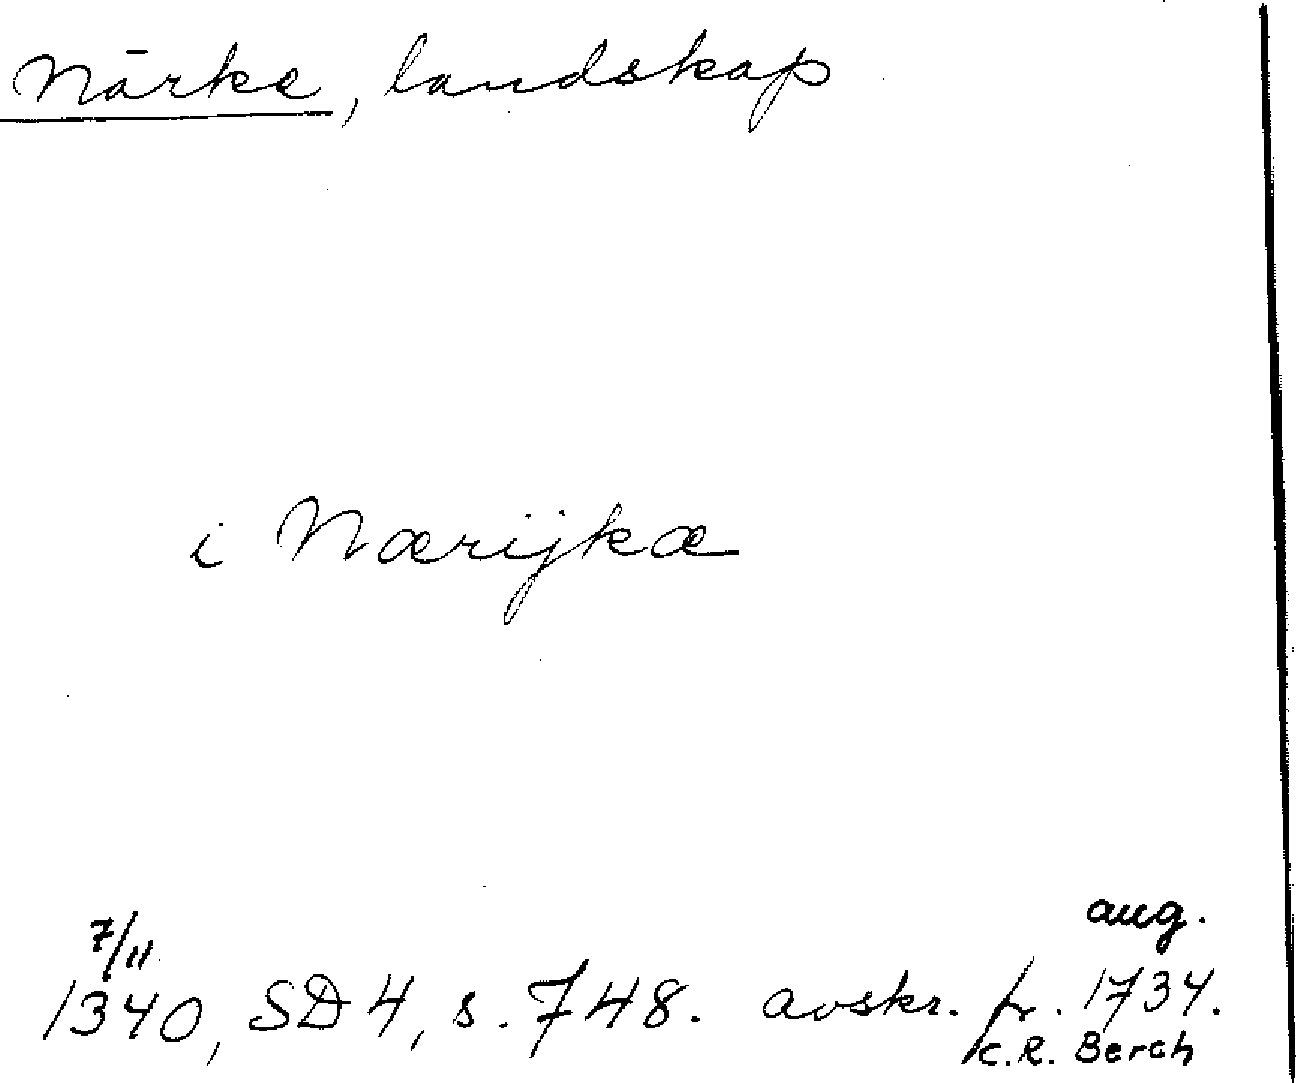 Närke, landskap
i Närijkæ
7/11 aug.
1340, SD 4, s. 748. avskr. fr. 1734.
/C.R. Berch